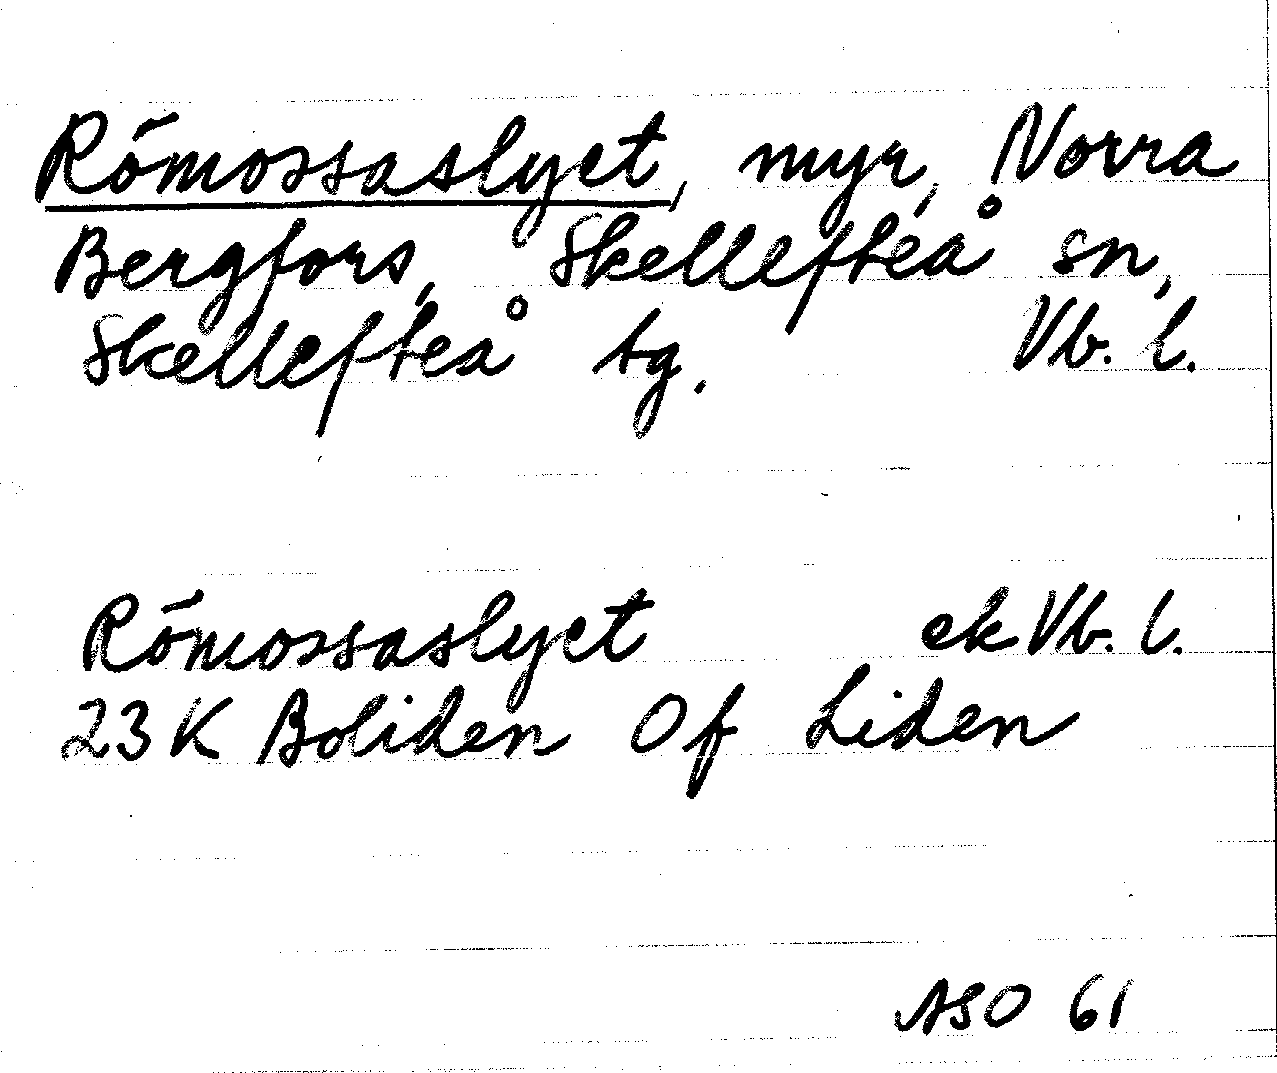 Römossaslyet, myr, Norra
Bergfors, Skellefteå sn,
Skellefteå tg. Vb. l.
Römossaslyet ek Vb. l.
23 K Boliden Of Liden
ASO 61